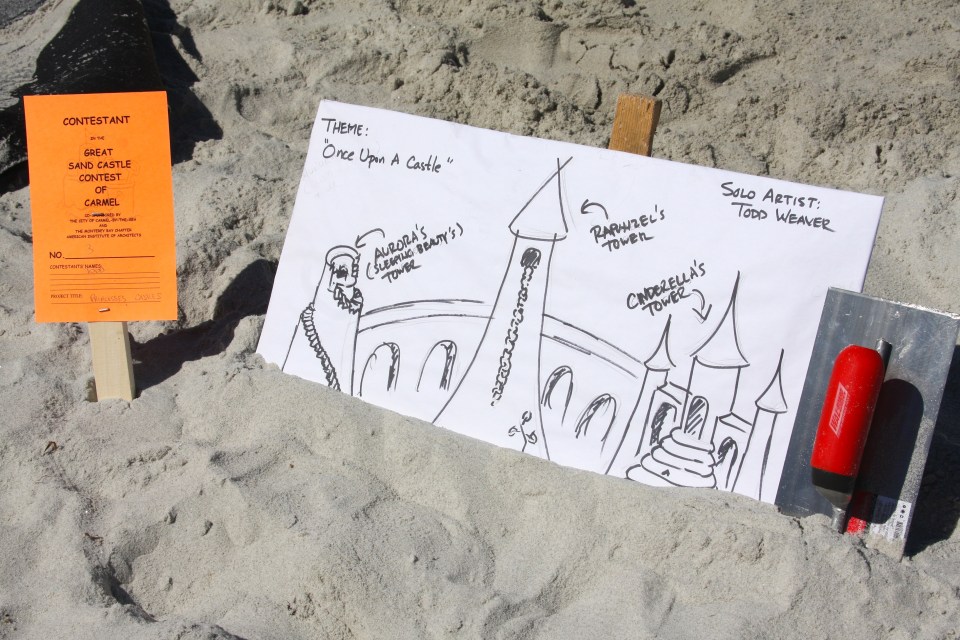 CONTESTANT
IN THE
GREAT
SAND CASTLE
CONTEST
OF
CARMEL
THE CITY OF CARMEL-BY-THE-SEA
AND
THE MONTEREY BAY CHAPTER
AMERICAN INSTITUTE OF ARCHITECTS
NO.
CONTESTANTS NAMES:
PROJECT TITLE:
THEME:
"Once Upon A Castle"
SOLO ARTIST:
TODD WEAVER
AURORA'S
(SLEEPING BEAUTY'S)
TOWER
RAPUNZEL'S
TOWER
CINDERELLA'S
TOWER